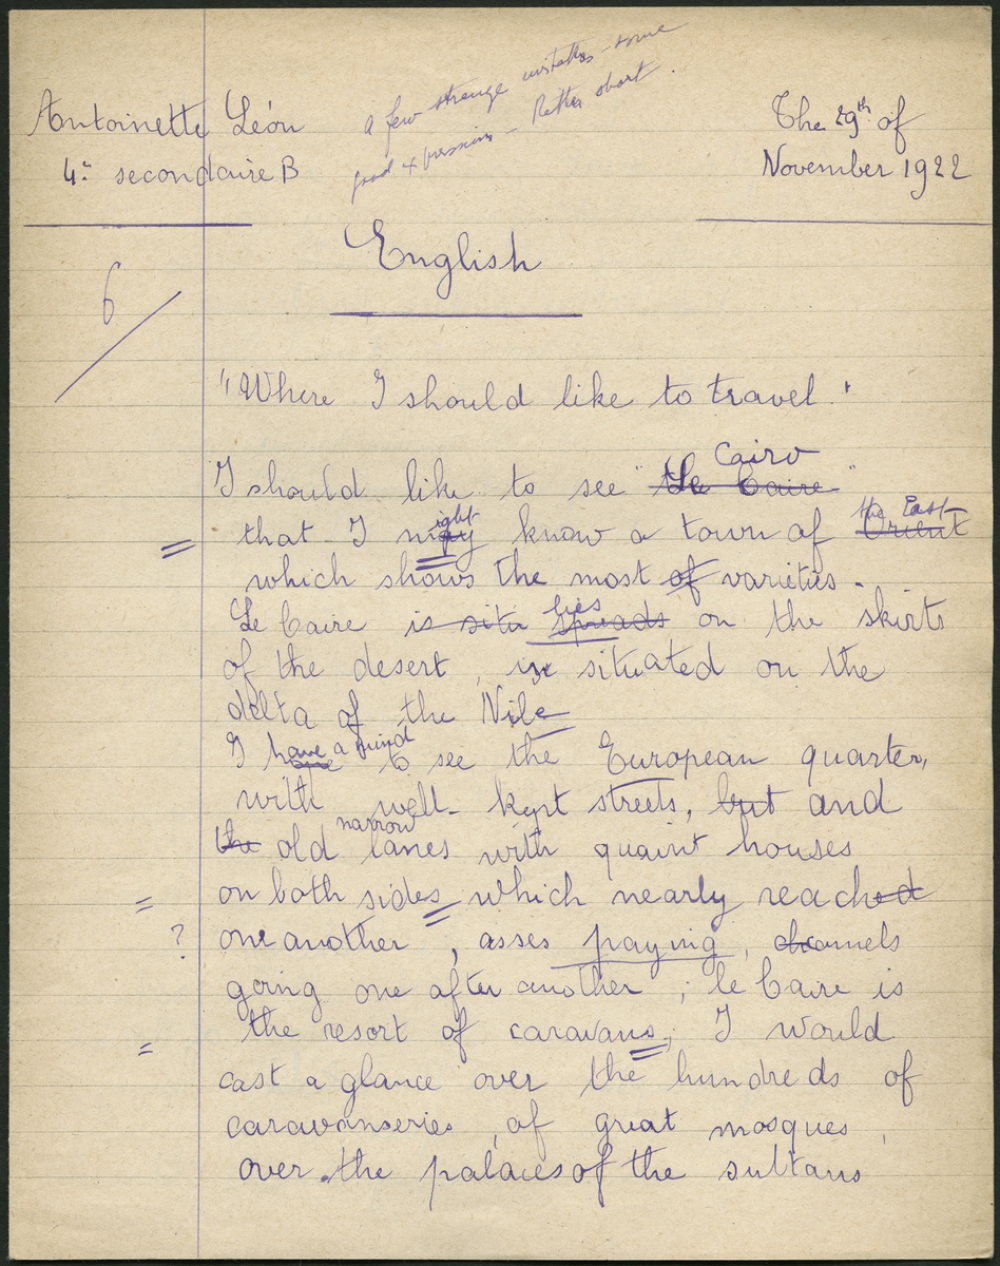 Antoinette Léon
4e secondaire B
a few strange mistakes - some
good expressions - Rather short.
The 29th of
November 1922
English
6
"Where I should like to travel."
Cairo
I should like to see "Le Caire"
ight the East
that I may know a town of Orient
which shows the most of varieties.
lies
Le Caire is situ spreads on the skirts
of the desert, is situated on the
delta of the Nile
have a mind
I hope to see the European quarter,
with well-kept streets, but and
narrow
the old lanes with quaint houses
= on both sides which nearly reached
? one another, asses paying, camels
going one after another; le Caire is
the resort of caravans; I would
= cast a glance over the hundreds of
caravanseries, of great mosques,
over the palaces of the sultans